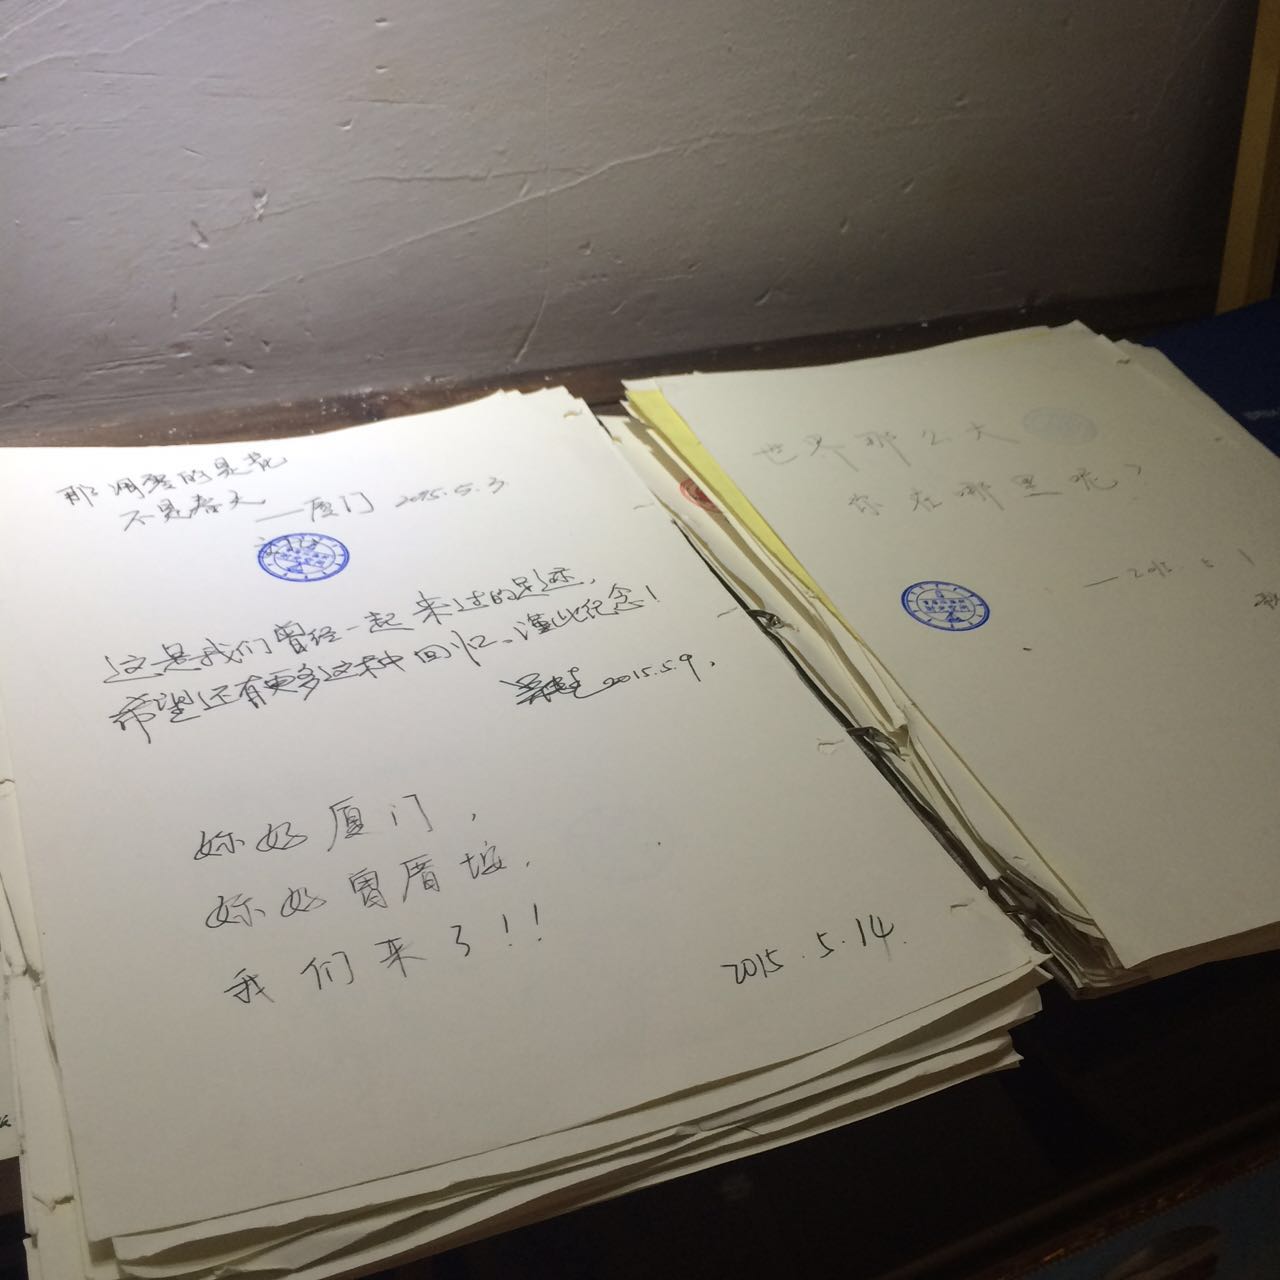 那凋零的是花
不是春天
——厦门 2015.5.3
这是我们曾经一起来过的足迹,
希望还有更多这样的回忆。谨此纪念!
2015.5.9.
妳好厦门,
妳好曾厝垵,
我们来了!!
2015.5.14.
世界那么大
你在哪里呢?
——2015.5.1